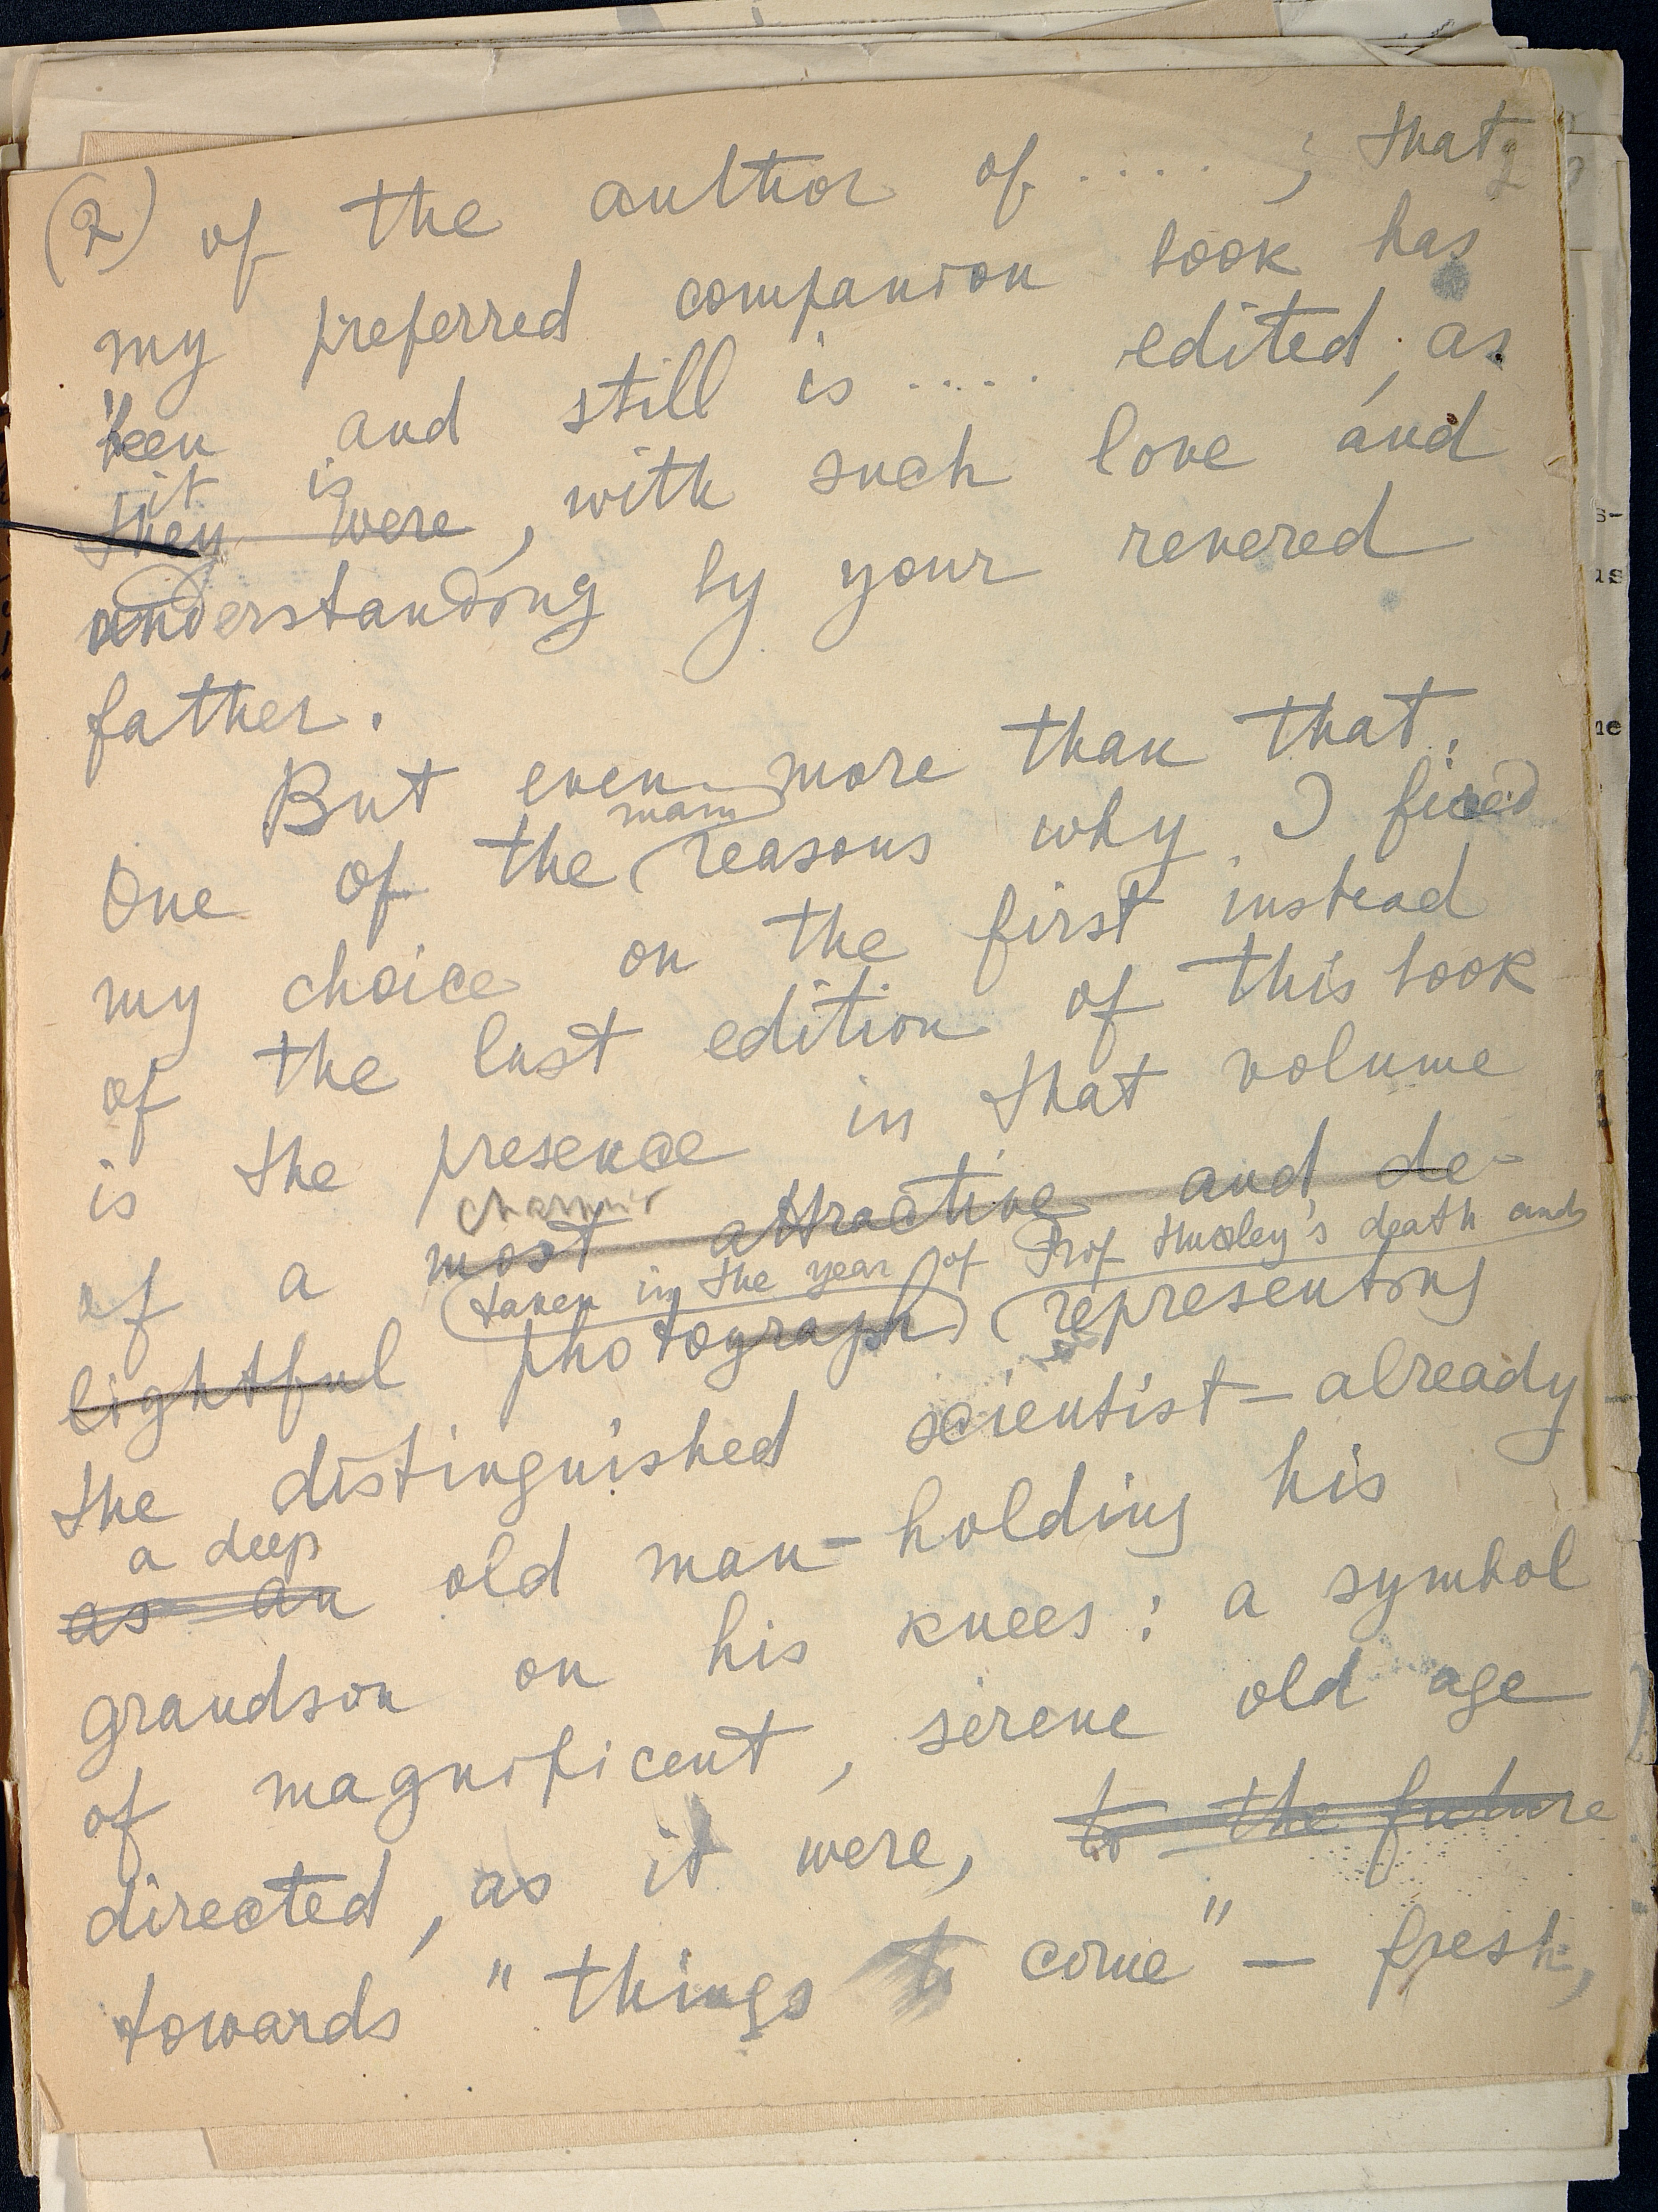 (2) of the author of ..... ; that
my preferred companion book has
been and still is ..... edited, as
it is
they were, with such love and
understanding by your revered
father.
But even more than that.
main
One of the reasons why I fixed
my choice on the first instead
of the last edition of this book
is the presence in that volume
of a most attractive and de-
taken in the year of Prof Huxley's death and
lightful photograph representing
the distinguished scientist – already
a deep
as an old man – holding his
grandson on his knees : a symbol
of magnificent, serene old age
directed, as it were, to the future
towards "things to come" – fresh,